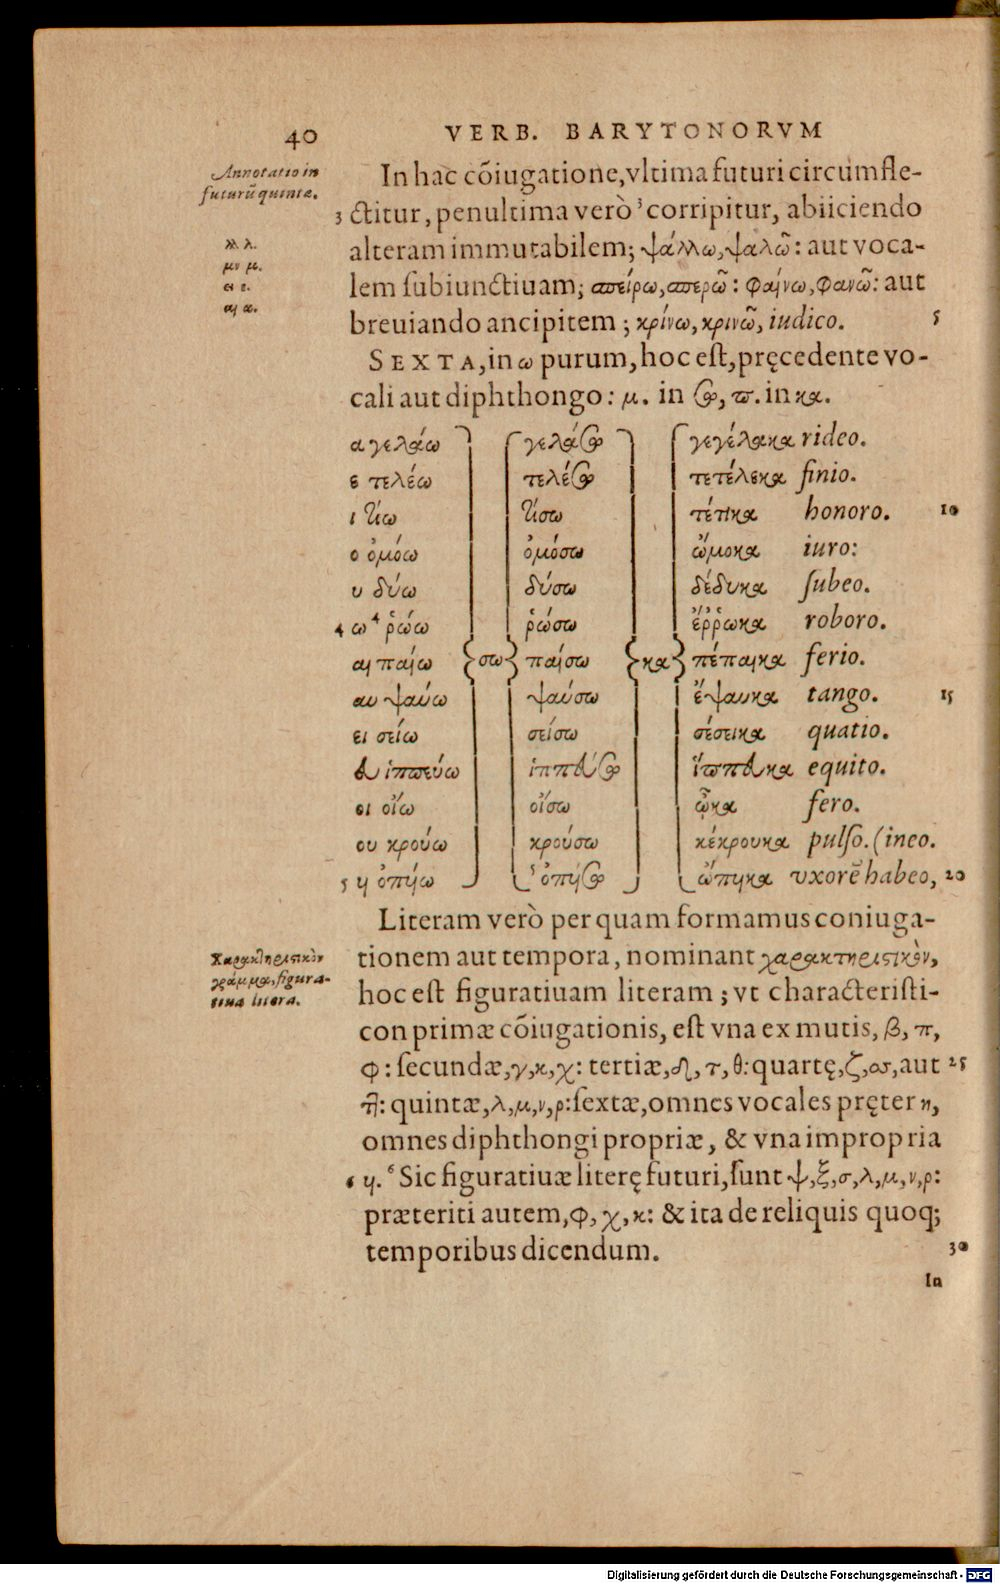 40 VERB. BARYTONORVM
Annotatio in
futurũ quintæ.
In hac cõiugatione, vltima futuri circumfle-
3 ctitur, penultima verò ³ corripitur, abiiciendo
λλ λ.
alteram immutabilem; ψάλλω, ψαλῶ: aut voca-
μν μ.
ει ε.
lem subiunctiuam; σπείρω, σπερῶ: φαίνω, φανῶ: aut
αι α.
breuiando ancipitem; κρίνω, κρινῶ, iudico. 5
SEXTA, in ω purum, hoc est, pręcedente vo-
cali aut diphthongo: μ. in σω, ϖ. in κα.
α γελάω γελάσω γεγέλακα rideo.
ε τελέω τελέσω τετέλεκα finio.
ι τίω τίσω τέτικα honoro. 10
ο ὀμόω ὀμόσω ὤμοκα iuro:
υ δύω δύσω δέδυκα subeo.
4 ω ⁴ ῥώω ῥώσω ἔῤῥωκα roboro.
αι παίω σω παίσω κα πέπαικα ferio.
αυ ψαύω ψαύσω ἔψαυκα tango. 15
ει σείω σείσω σέσεικα quatio.
ευ ἱππεύω ἱππεύσω ἵππευκα equito.
οι οἴω οἴσω ᾦκα fero.
ου κρούω κρούσω κέκρουκα pulso. (ineo.
5 υι ὀπυίω ⁵ ὀπυίσω ὤπυικα vxorẽ habeo, 20
Literam verò per quam formamus coniuga-
Χαρακτηριστικὸν
γράμμα, figura-
tiua litera.
tionem aut tempora, nominant χαρακτηριστικὸν,
hoc est figuratiuam literam; vt characteristi-
con primæ cõiugationis, est vna ex mutis, β, π,
φ: secundæ, γ, κ, χ: tertiæ, δ, τ, θ: quartę, ζ, σσ, aut 25
ττ: quintæ, λ, μ, ν, ρ: sextæ, omnes vocales pręter η,
omnes diphthongi propriæ, & vna impropria
6 υι. ⁶ Sic figuratiuæ literę futuri, sunt ψ, ξ, σ, λ, μ, ν, ρ:
præteriti autem, φ, χ, κ: & ita de reliquis quoq;
temporibus dicendum. 30
In
Digitalisierung gefördert durch die Deutsche Forschungsgemeinschaft - DFG